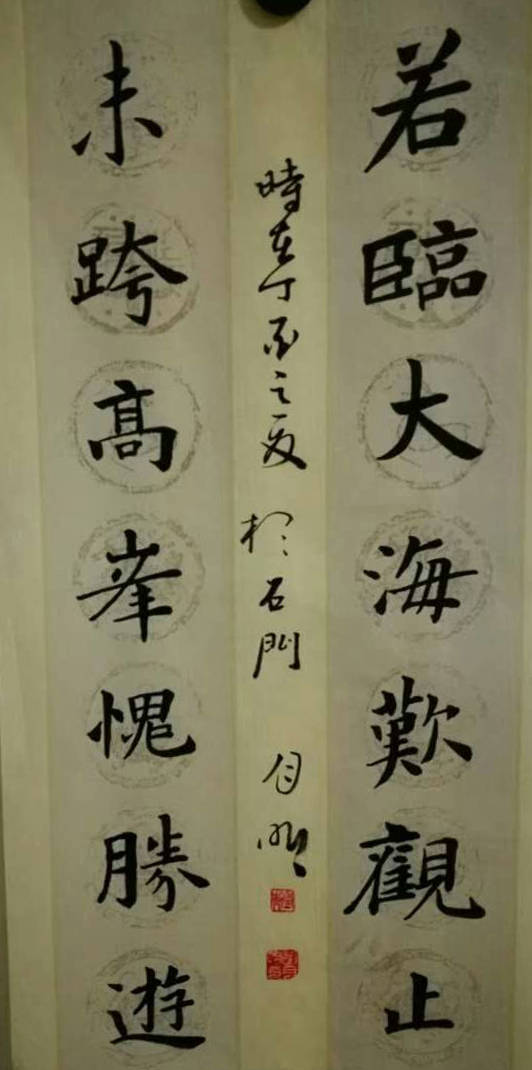 若臨大海歎觀止
時在丁酉之夏 於石門
未跨高峯愧勝遊